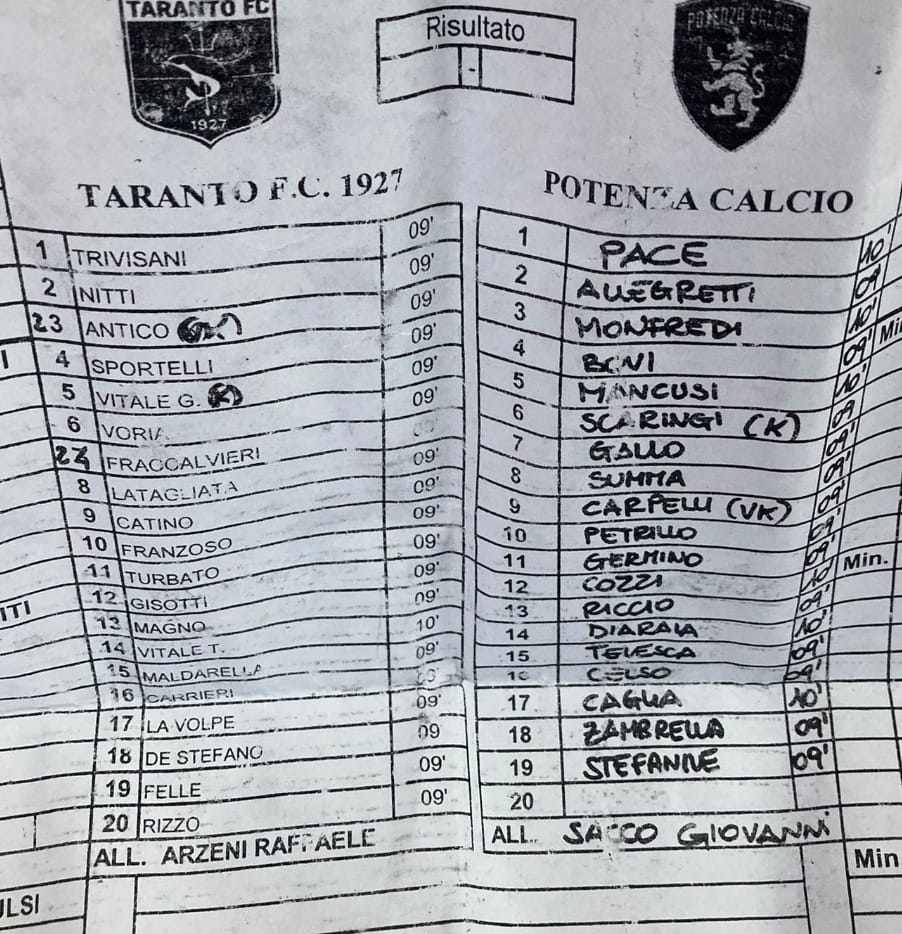 TARANTO FC
1927
Risultato
-
POTENZA CALCIO
TARANTO F.C. 1927
1 TRIVISANI 09'
2 NITTI 09'
23 ANTICO 09'
4 SPORTELLI 09'
5 VITALE G. 09'
6 VORIA
24 FRACCALVIERI 09'
8 LATAGLIATA 09'
9 CATINO 09'
10 FRANZOSO 09'
11 TURBATO 09'
12 GISOTTI 09'
13 MAGNO 10'
14 VITALE T. 09'
15 MALDARELLA
16 CARRIERI 09'
17 LA VOLPE 09
18 DE STEFANO 09'
19 FELLE 09'
20 RIZZO
ALL. ARZENI RAFFAELE
POTENZA CALCIO
1 PACE 10'
2 ALLEGRETTI 09'
3 MONFREDI 10'
4 BONI 09'
5 MANCUSI 10'
6 SCARINGI (K) 09
7 GALLO 09'
8 SUMMA 09'
9 CARPELLI (VK) 09'
10 PETRILLO 09'
11 GERMINO 09'
12 COZZI 10'
13 RICCIO 09'
14 10'
15 TELESCA 09'
16 CELSO 09'
17 CAGLIA 10'
18 ZAMBRELLA 09'
19 09'
20
ALL. SACCO GIOVANNI
Min
Min.
Min
ITI
ULSI